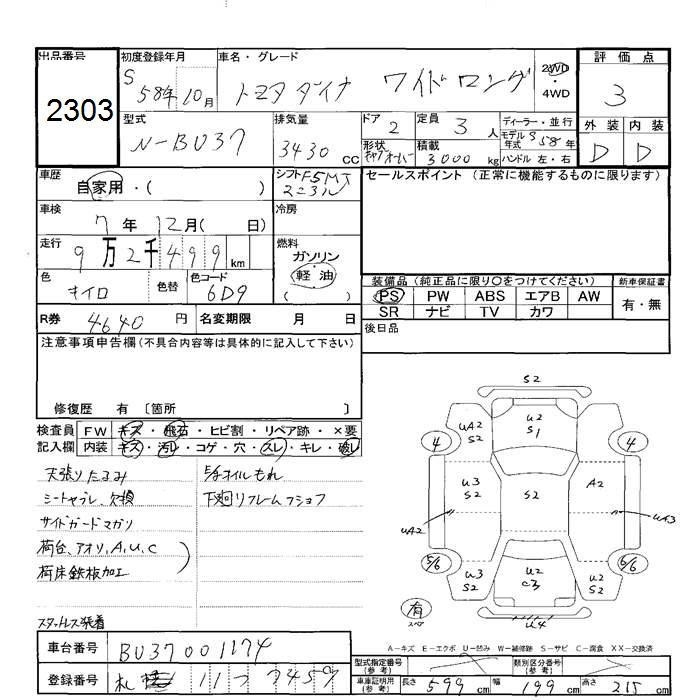 出品番号 初度登録年月 車名・グレード 2WD・4WD 評価点
2303 S 58年10月 トヨタダイナ ワイドロング 3
型式 排気量 ドア 2 定員 3人 ディーラー・並行 外装 内装
N-BU37 3430cc 形状 積載 3000kg モデル年式 S58年 ハンドル 左・右 D D
車歴 自家用・( ) シフト F5MT セールスポイント(正常に機能するものに限ります)
車検 7年12月( 日) 冷房
走行 9万2千499km 燃料 ガソリン 軽油 ( )
色 キイロ 色替 色コード 6D9
装備品(純正品に限り○をつけてください) 新車保証書
PS PW ABS エアB AW 有・無
SR ナビ TV カワ
R券 4640円 名変期限 月 日 後日品
注意事項申告欄(不具合内容等は具体的に記入して下さい)
修復歴 有 〔箇所 〕
検査員 FW キズ・飛石・ヒビ割・リペア跡・×要
記入欄 内装 キズ・汚レ・コゲ・穴・スレ・キレ・破レ
天張りたるみ オイルもれ
シートヤブレ、欠損 下廻りフレームフショク
サイドガードマガリ
荷台、アオリ、A,U,C
荷床鉄板加工
スタットレス装着
S2
UA2 S2 U2 S1
4 4
U3 S2 S2 A2
UA2 UA3
5/6 6/6
U3 S2 U2 C3 U2 S2
有 スペア U4
A-キズ E-エクボ U-凹み W-補修跡 S-サビ C-腐食 XX-交換済
車台番号 BU37001174
登録番号 札幌 11
型式指定番号(参考) 類別区分番号(参考)
車庫証明用(参考) 長さ 599cm 幅 199cm 高さ 215cm